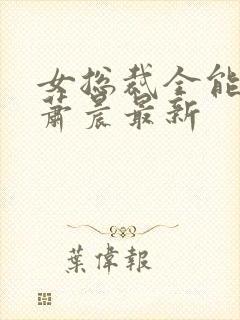 女总裁全能
萧晨最新
葉偉報